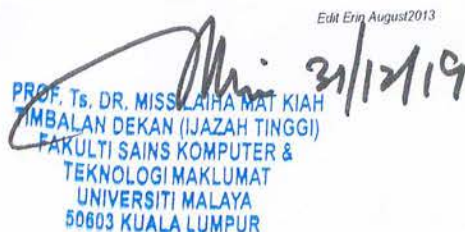 Edit Erin August2013
31/12/19
PROF. Ts. DR. MISS LAIHA MAT KIAH
TIMBALAN DEKAN (IJAZAH TINGGI)
FAKULTI SAINS KOMPUTER &
TEKNOLOGI MAKLUMAT
UNIVERSITI MALAYA
50603 KUALA LUMPUR